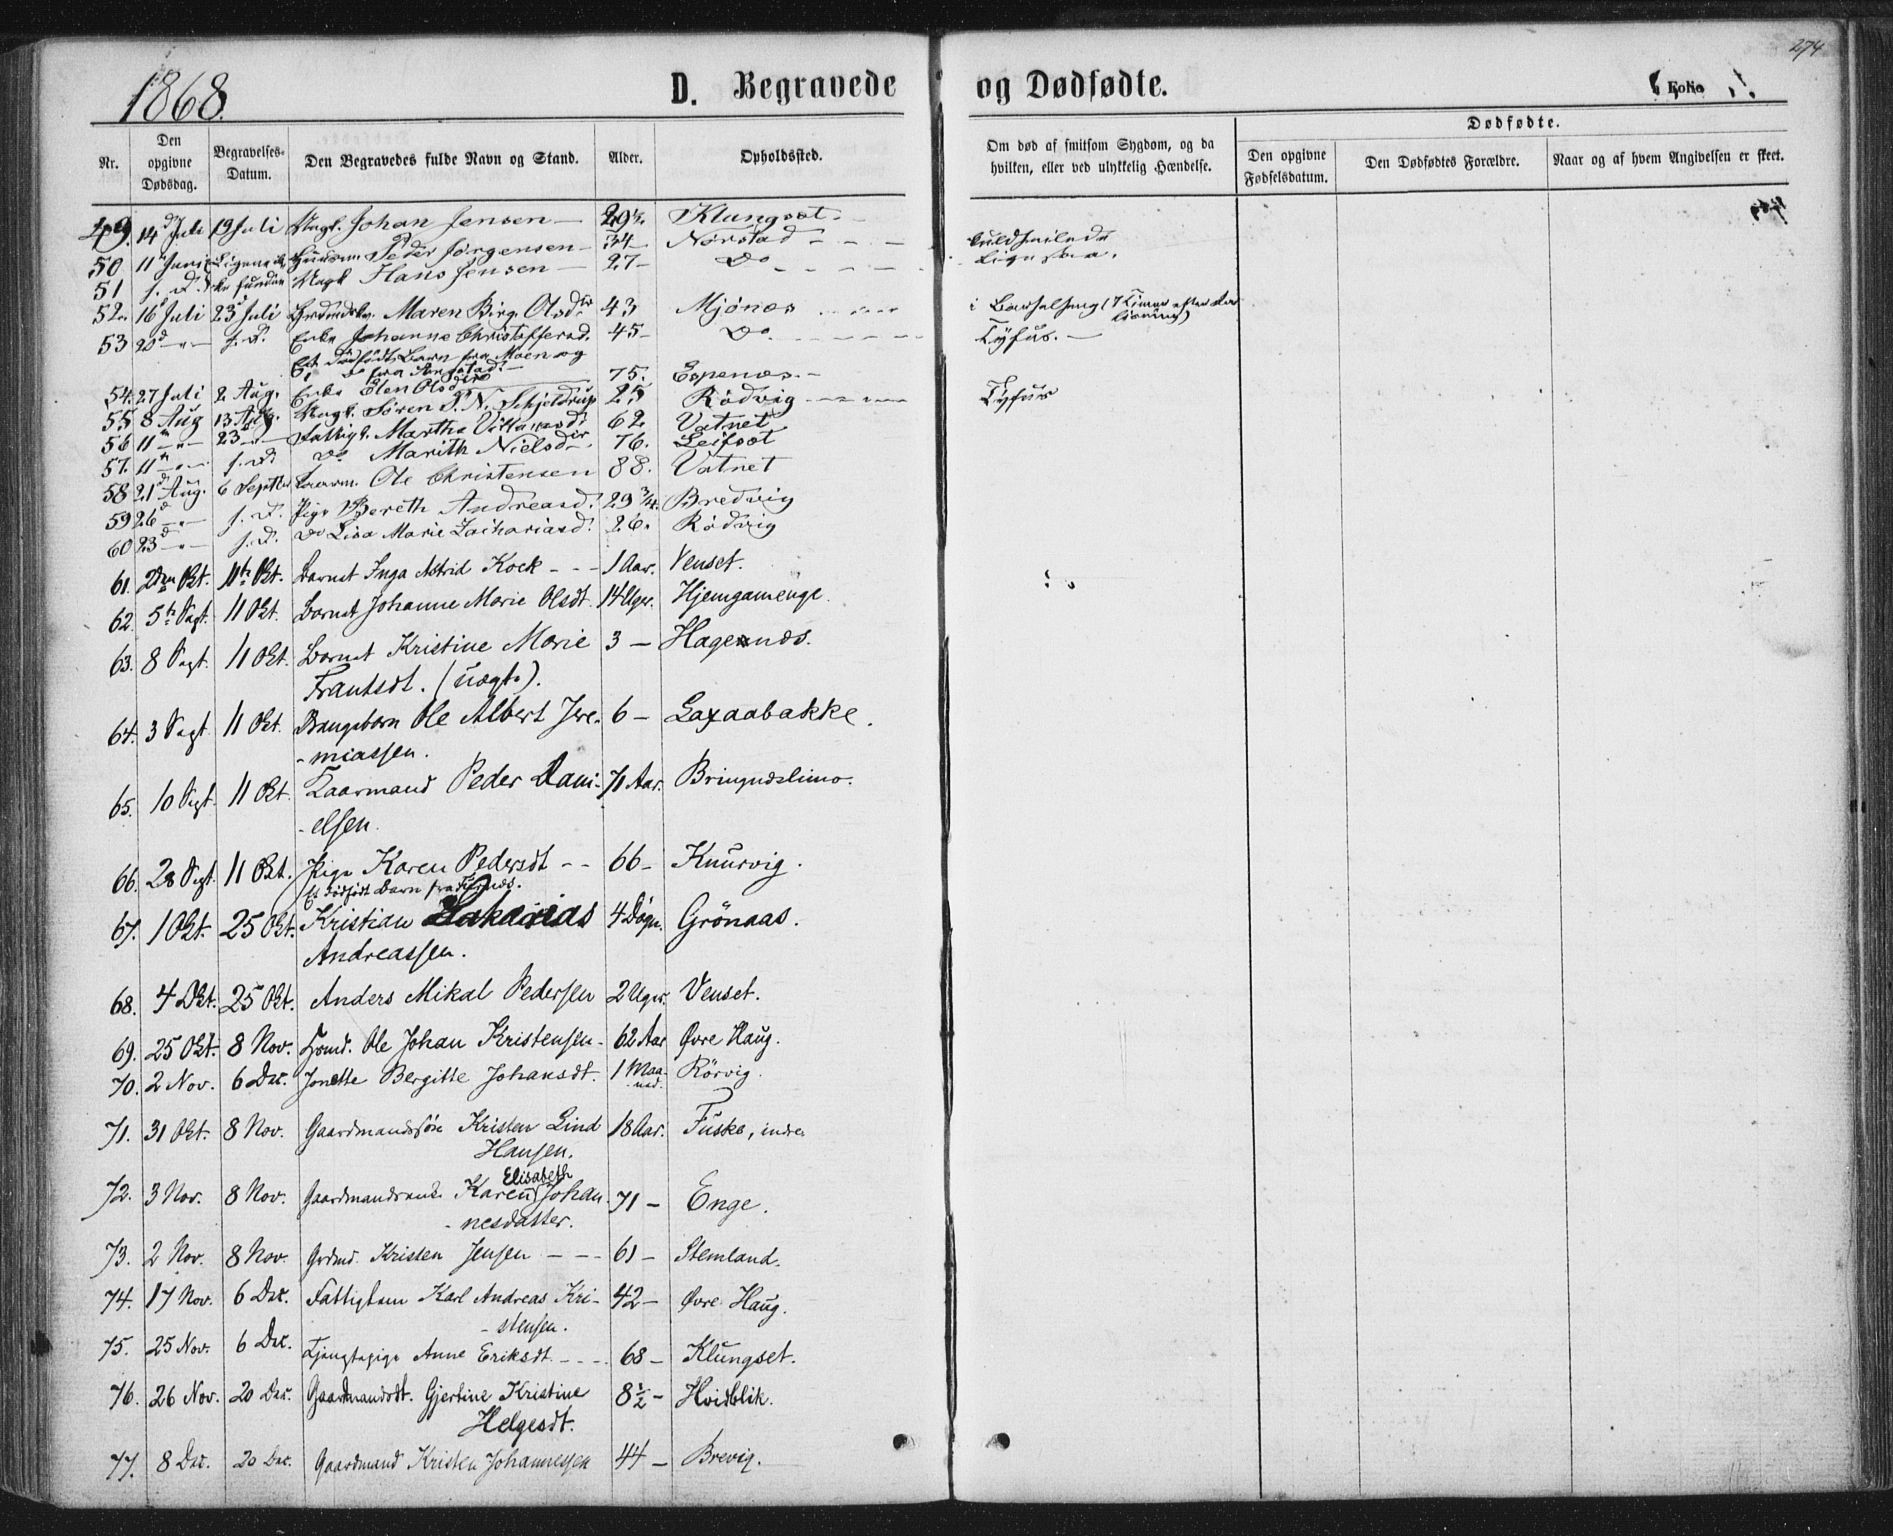 274
1868.
D. Begravede og Dødfødte.
Folio
Nr.
Den opgivne Dødsdag.
Begravelses-Datum.
Den Begravedes fulde Navn og Stand.
Alder.
Opholdssted.
Om død af smitsom Sygdom, og da hvilken, eller ved ulykkelig Hændelse.
Dødfødte.
Den opgivne Fødselsdatum.
Den Dødfødtes Forældre.
Naar og af hvem Angivelsen er skeet.
49. 14d Juli 19 Juli Ungk. Johan Jensen 29½ Klungset
50 11 Juni Ligene Peder Jørgensen 34 Nørstad
51 funden Ungk Hans Jensen 27 Do
52. 16 Juli 23d Juli Maren Birg. Olsdtr 43 Mjönæs i Barselseng
53 20d Enke Johanne Christoffersd. 45 Do Tyfus.
Et dødfødt Barn fra Moen og
54. 27 Juli 2 Aug. Enke Elen Olsdtr 75. Espenæs
55 8 Aug 13 Aug. Ungk. Sören P. N. Schjeldrup 25 Rödvig Tyfus
56 11 23 Fattigl. Martha 62 Vatnet
57. 11 do Marith Nielsdtr 76. Leifset
58 21d Aug. 6 Septbr Ole Christensen 88. Vatnet
59 26d Pige Bereth Andreasd. 29¾ Bredvig
60 23d do Lisa Marie Zachariasd. 26. Rödvig
61. 2den Okt. 11te Okt. Barnet Inga Astrid Kock 1 Aar. Venset.
62. 5te Sept. 11 Okt. Barnet Johanne Marie Olsdt. 14 Uger. Hjemgamenge.
63. 8 Sept. 11 Okt. Barnet Kristine Marie 3 — Hagenæs.
Frantsdt. (uægte).
64. 3 Sept. 11 Okt. Drengebarn Ole Albert Jere- 6 — Laxaabakke.
-miassen.
65. 10 Sept. 11 Okt. Kaarmand Peder Dani- 71 Aar. Bringnæslimo.
-elsen.
66. 28 Sept. 11 Okt. Pige Karen Pedersdt 66 — Knurvig.
Et dødfødt Barn fra
67. 1 Okt. 25 Okt. Kristian Zakarias 4 Døgn. Grönaas.
Andreassen.
68. 4 Okt. 25 Okt. Anders Mikal Pedersen 2 Uger. Venset.
69. 25 Okt. 8 Nov. Ole Johan Kristensen 62 Aar Øvre Haug.
70. 2 Nov. 6 Dec. Jonette Bergitte Johansdt. 1 Maaned. Rörvig.
71. 31 Okt. 8 Nov. Gaardmandssön Kristen Lind 18 Aar. Fuske, indre
Hansen.
72. 3 Nov. 8 Nov. Gaardmandsenke Karen Elisabeth Johan- 71 — Enge.
-nesdatter.
73. 2 Nov. 8 Nov. Grdmd. Kristen Jensen 61 — Stemland.
74. 17 Nov. 6 Dec. Fattiglem Karl Andreas Kri- 42 — Øvre Haug.
-stensen.
75. 25 Nov. 6 Dec. Anne Eriksdt. 68 — Klungset.
76. 26 Nov. 20 Dec. Gaardmandsdt. Gjertine Kristine 8½ — Hvidblik.
Helgesdt.
77. 8 Dec. 20 Dec. Gaardmand Kristen Johannessen 44 — Brevig.